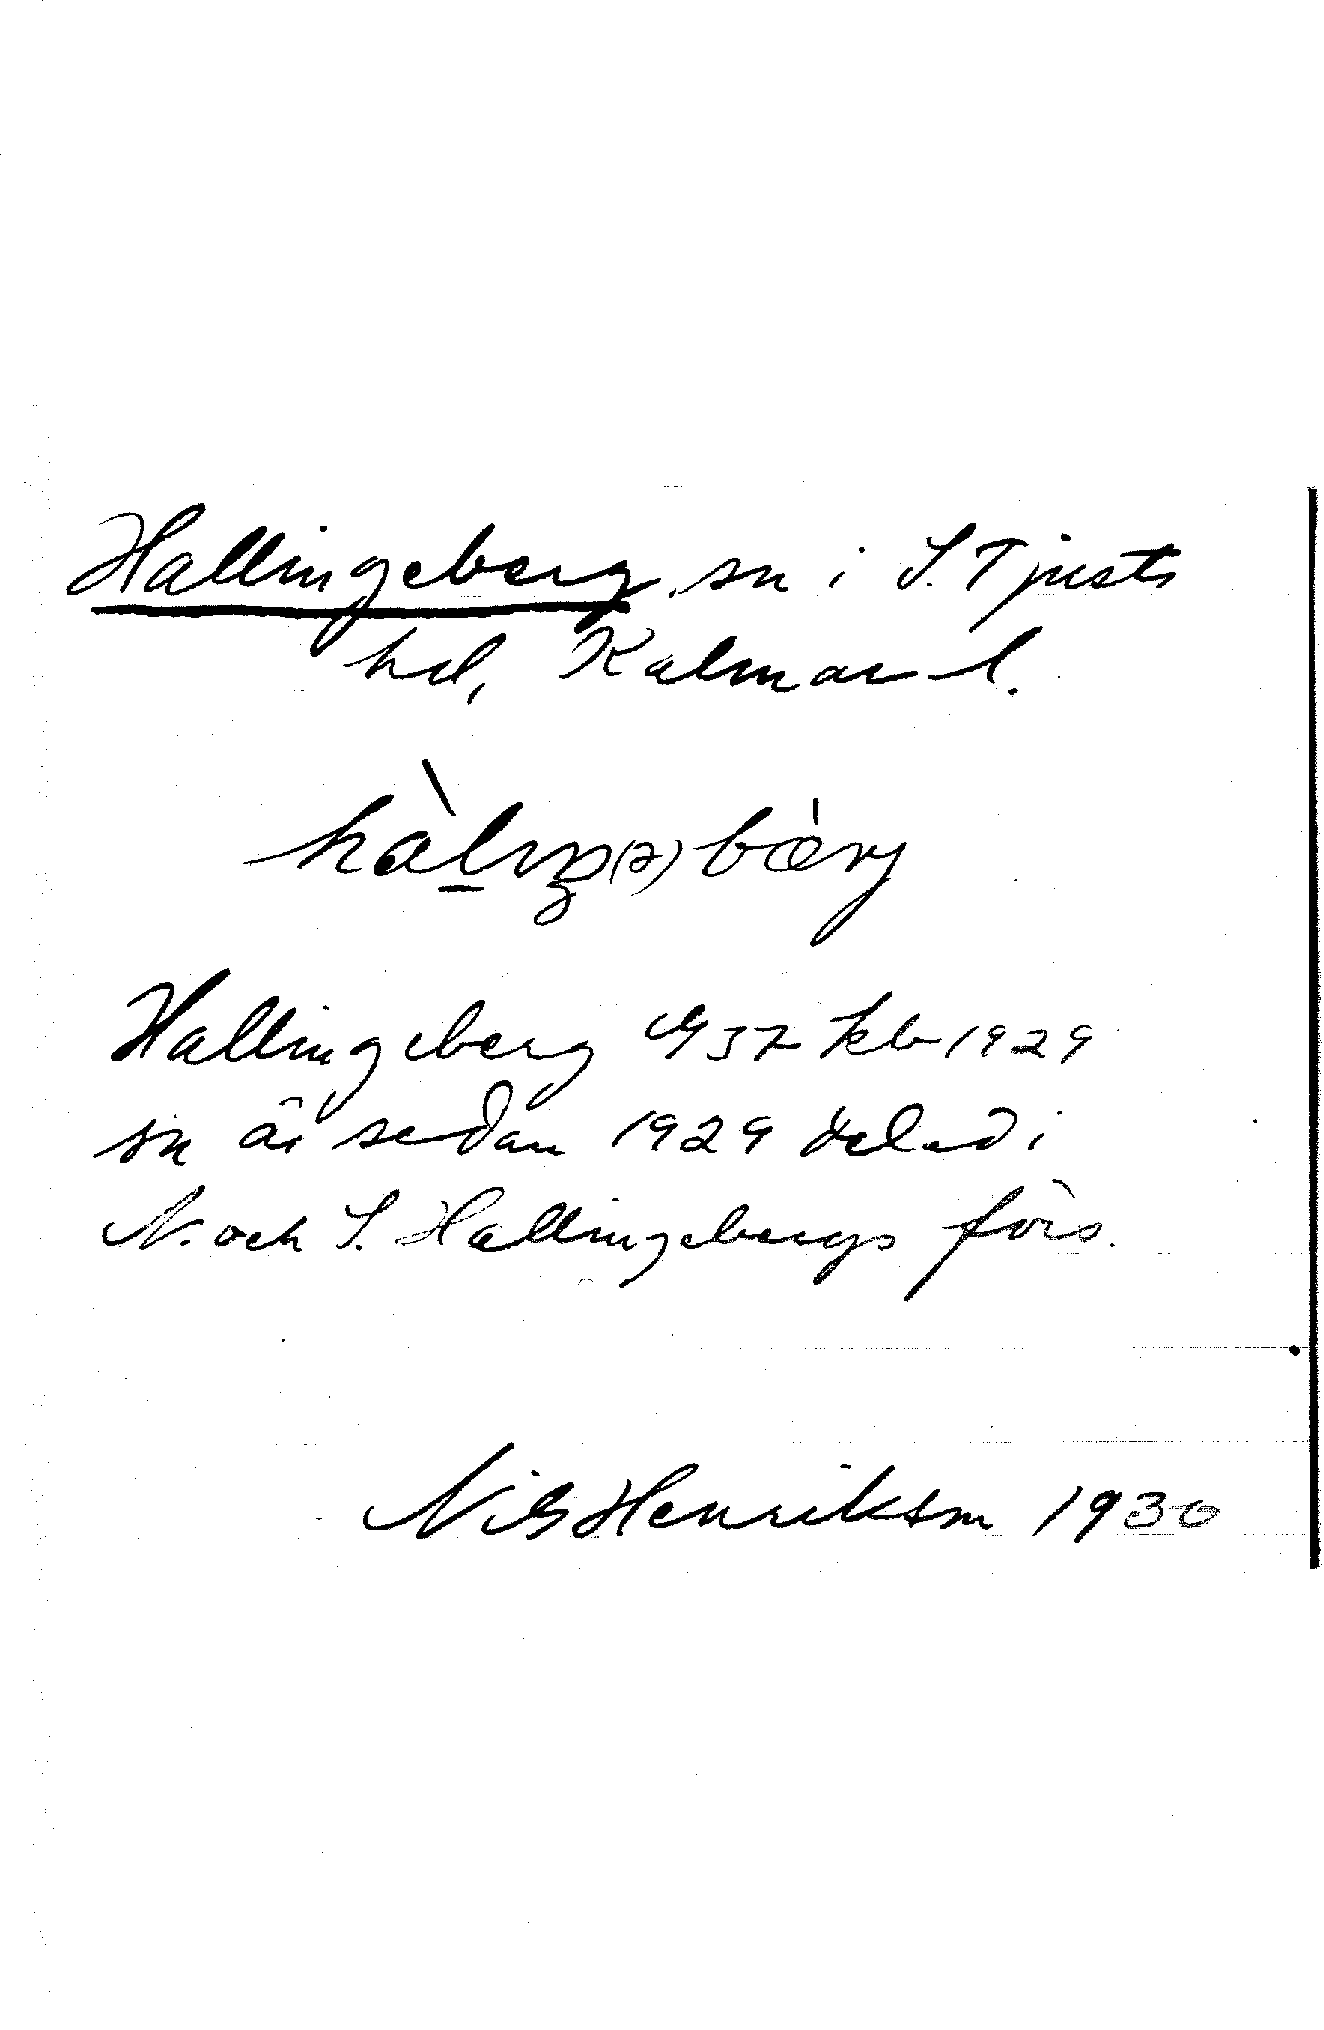 Hallingeberg sn i S. Tjusts
hd, Kalmar l.
hàlıŋ(ə)bærj
Hallingeberg G 37 kb 1929
sn är sedan 1929 delad i
N. och S. Hallingebergs förs.
Nils Henrikson 1930